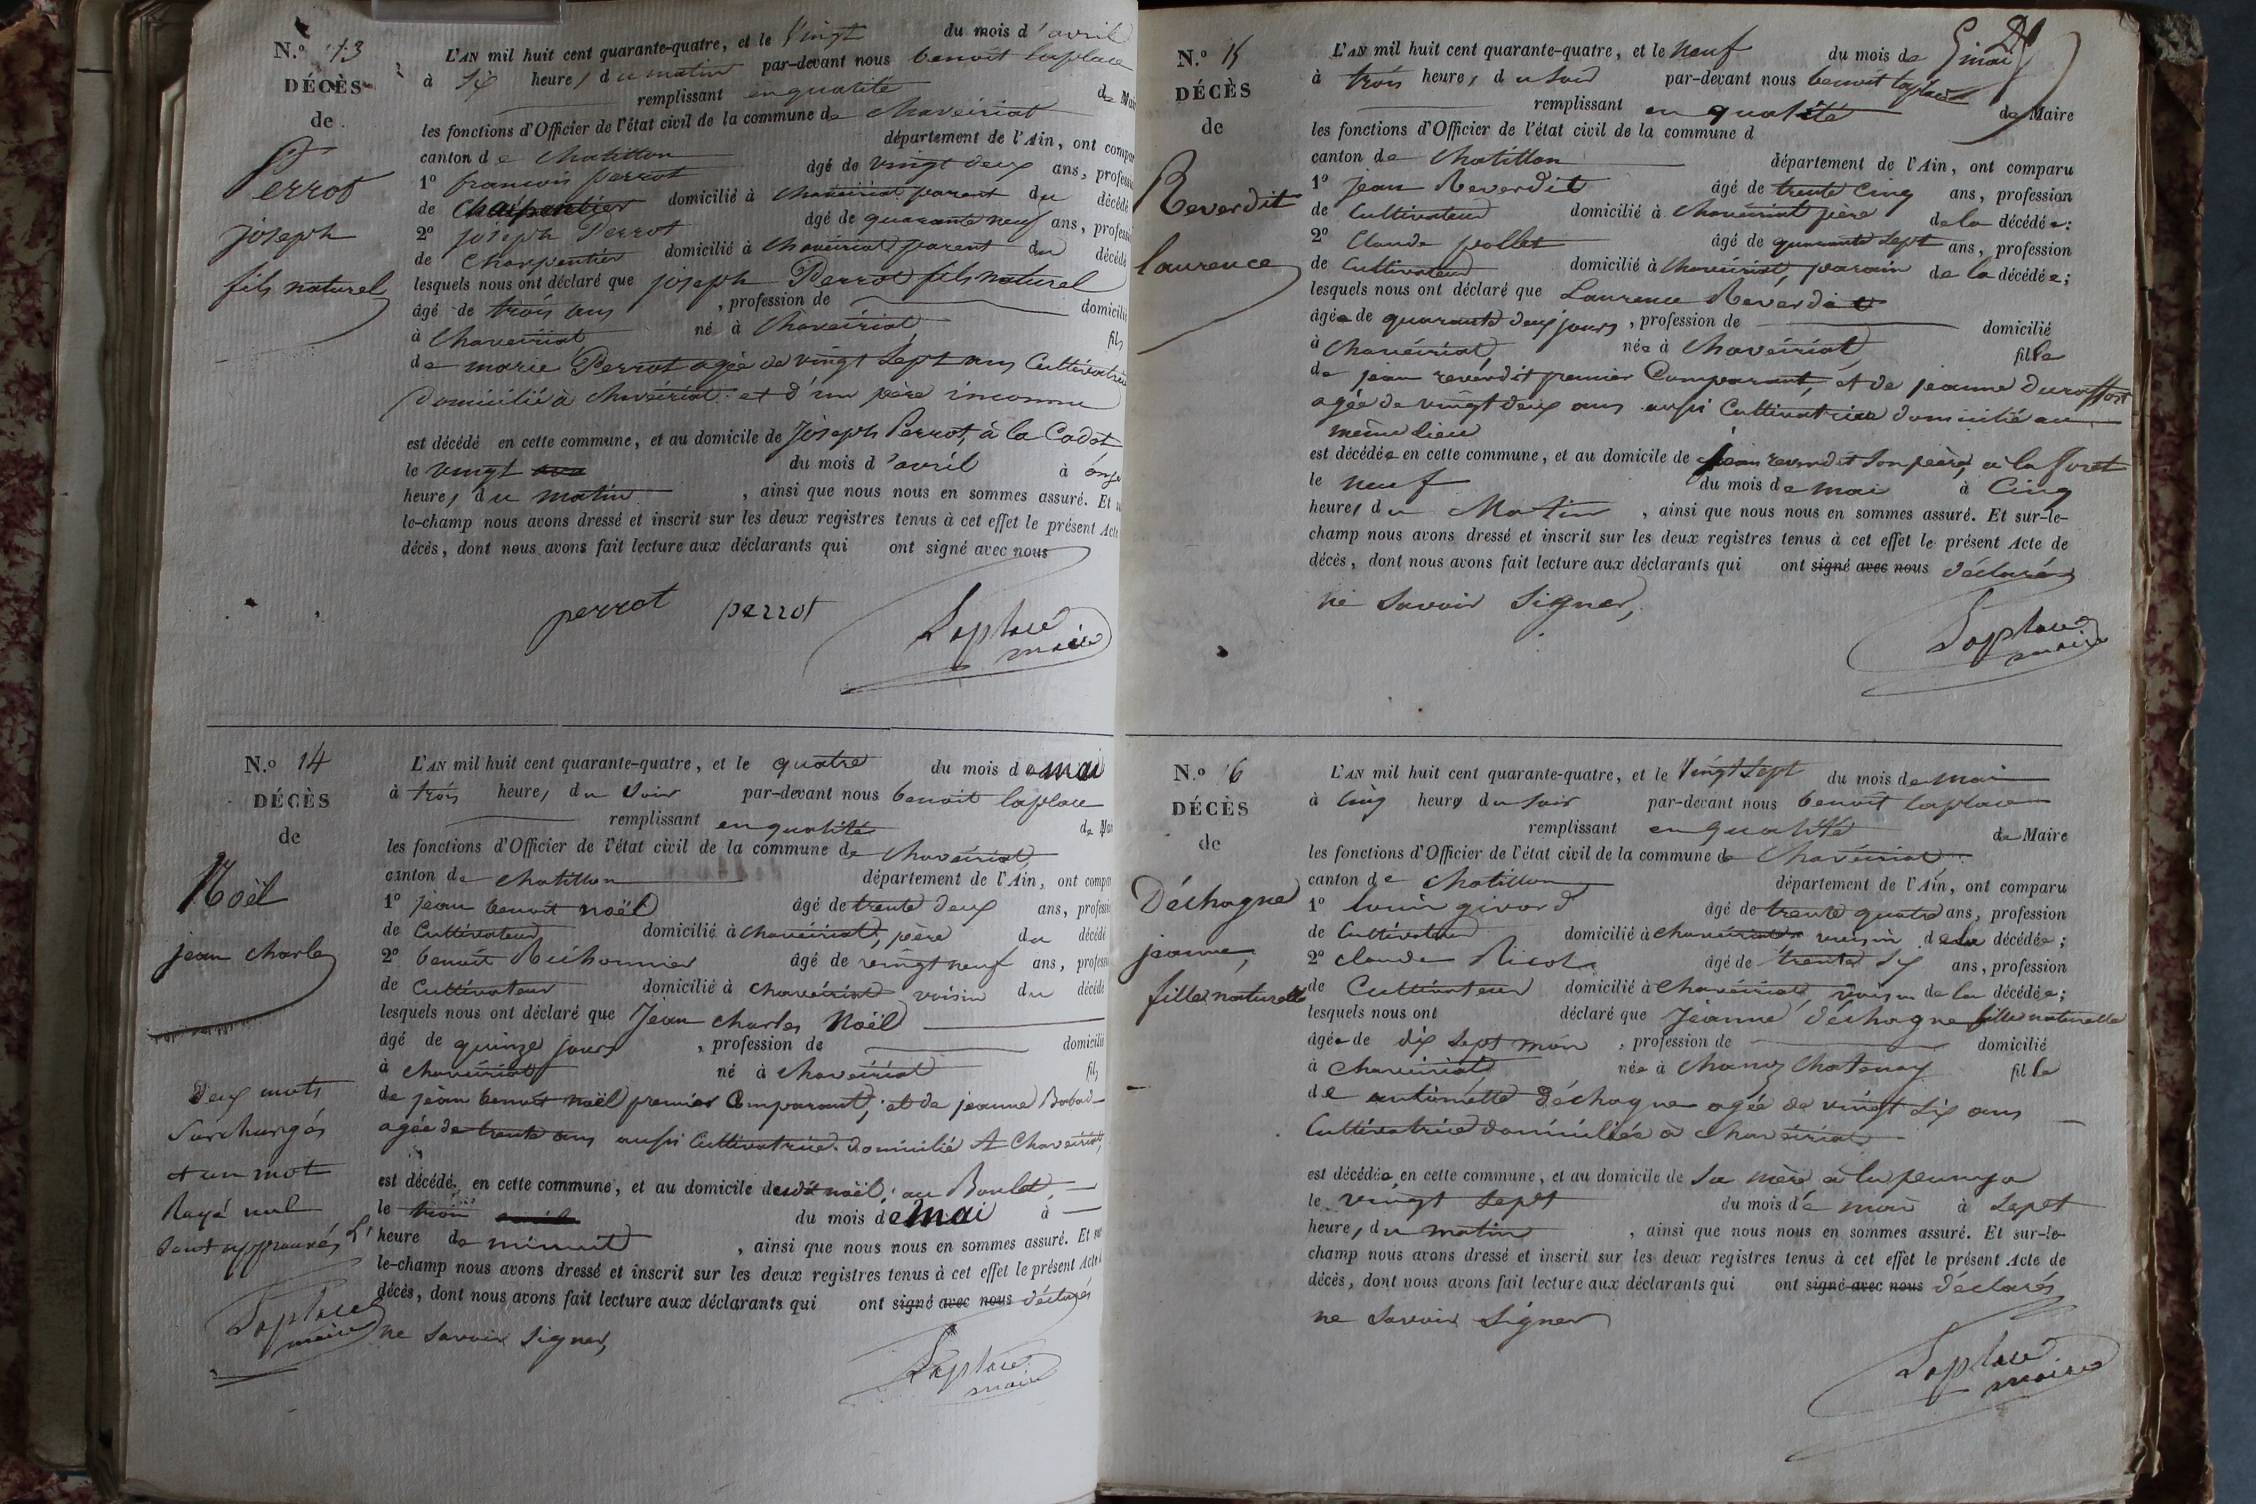 N.o 13
DÉCÈS
de
Perrot
joseph
fils naturel
L'AN mil huit cent quarante-quatre, et le Vingt du mois d'avril
à six heures du matin par-devant nous benoit laplace
remplissant en qualité de Mai
les fonctions d'Officier de l'état civil de la commune de Chaveiriat
canton de Chatillon département de l'Ain, ont compa
1o francois perrot âgé de vingt deux ans, profess
de Charpentier domicilié à Chaveiriat parent du décédé
2o joseph Perrot âgé de quarante neuf ans, profess
de Charpentier domicilié à Chaveiriat parent du décédé
lesquels nous ont déclaré que joseph Perrot fils naturel
âgé de trois ans , profession de domicilié
à Chaveiriat né à Chaveiriat fils
de marie Perrot agée de vingt sept ans Cultivatrice
Domicilié à Chavéiriat et d'un père inconnu
est décédé en cette commune, et au domicile de Joseph Perrot, à la Cadot
le vingt du mois d'avril à onze
heures du matin , ainsi que nous nous en sommes assuré. Et
le-champ nous avons dressé et inscrit sur les deux registres tenus à cet effet le présent Acte
décès, dont nous avons fait lecture aux déclarants qui ont signé avec nous
perrot perrot Laplace
maire
N.o 14
DÉCÈS
de
Noël
jean charles
Deux mots
Surchargés
et un mot
Rayé nul
Sont approuvés
Laplace
maire
L'AN mil huit cent quarante-quatre, et le quatre du mois de mai
à trois heures du Soir par-devant nous benoit laplace
remplissant en qualité de Mai
les fonctions d'Officier de l'état civil de la commune de Chavéiriat
canton de Chatillon département de l'Ain, ont compa
1o jean benoit noël âgé de trente deux ans, profess
de Cultivateur domicilié à Chavéiriat, père du décédé
2o benoit Bichonnier âgé de vingt neuf ans, profess
de Cultivateur domicilié à Chavéiriat voisin du décédé
lesquels nous ont déclaré que Jean charles Noël
âgé de quinze jours , profession de domicilié
à Chavéiriat né à Chavéiriat fils
de jean benoit noël premier Comparant, et de jeanne
agée de trente ans aussi Cultivatrice domicilié A Chavéiriat,
est décédé en cette commune, et au domicile dudit noël, au
le trois du mois de mai à
heure de minuit , ainsi que nous nous en sommes assuré. Et
le-champ nous avons dressé et inscrit sur les deux registres tenus à cet effet le présent Acte
décès, dont nous avons fait lecture aux déclarants qui ont signé avec nous déclarés
ne Savoir Signer,
Laplace
maire
N.o 15
DÉCÈS
de
Reverdit
laurence
L'AN mil huit cent quarante-quatre, et le neuf du mois de mai
à trois heures du Soir par-devant nous benoit laplace
remplissant en qualité de Maire
les fonctions d'Officier de l'état civil de la commune d
canton de Chatillon département de l'Ain, ont comparu
1o jean Reverdit âgé de trente Cinq ans, profession
de Cultivateur domicilié à Chavéiriat père de la décédée:
2o Claude pollet âgé de quarante Sept ans, profession
de Cultivateur domicilié à Chavéiriat, parain de la décédée;
lesquels nous ont déclaré que Laurence Reverdit
âgée de quarante deux jours , profession de domicilié
à Chavéiriat, née à Chavéiriat fille
de jean reverdit premier Comparant, et de jeanne
agée de vingt deux ans aussi Cultivatrice domicilié au
même lieu
est décédée en cette commune, et au domicile de jean reverdit Son père, à la foret
le neuf du mois de mai à Cinq
heures du Matin , ainsi que nous nous en sommes assuré. Et sur-le-
champ nous avons dressé et inscrit sur les deux registres tenus à cet effet le présent Acte de
décès, dont nous avons fait lecture aux déclarants qui ont signé avec nous déclarés
ne Savoir Signer,
Laplace
maire
N.o 16
DÉCÈS
de
Déchagne
jeanne,
fille naturelle
L'AN mil huit cent quarante-quatre, et le Vingt Sept du mois de mai
à Cinq heures du Soir par-devant nous benoit laplace
remplissant en qualité de Maire
les fonctions d'Officier de l'état civil de la commune de Chavéiriat
canton de Chatillon département de l'Ain, ont comparu
1o givord âgé de trente quatre ans, profession
de Cultivateur domicilié à Chavéiriat voisin de la décédée;
2o claude Nicol âgé de trente Six ans, profession
de Cultivateur domicilié à Chavéiriat, voisin de la décédée;
lesquels nous ont déclaré que Jeanne déchagne fille naturelle
âgée de dix Sept mois , profession de domicilié
à Chavéiriat née à Chanoz Chatenay fille
de antoinette Déchagne agée de vingt Six ans
Cultivatrice domiciliée à Chavéiriat
est décédée en cette commune, et au domicile de Sa mère à
le vingt Sept du mois de mai à Sept
heures du matin , ainsi que nous nous en sommes assuré. Et sur-le-
champ nous avons dressé et inscrit sur les deux registres tenus à cet effet le présent Acte de
décès, dont nous avons fait lecture aux déclarants qui ont signé avec nous déclarés
ne Savoir Signer
Laplace
maire